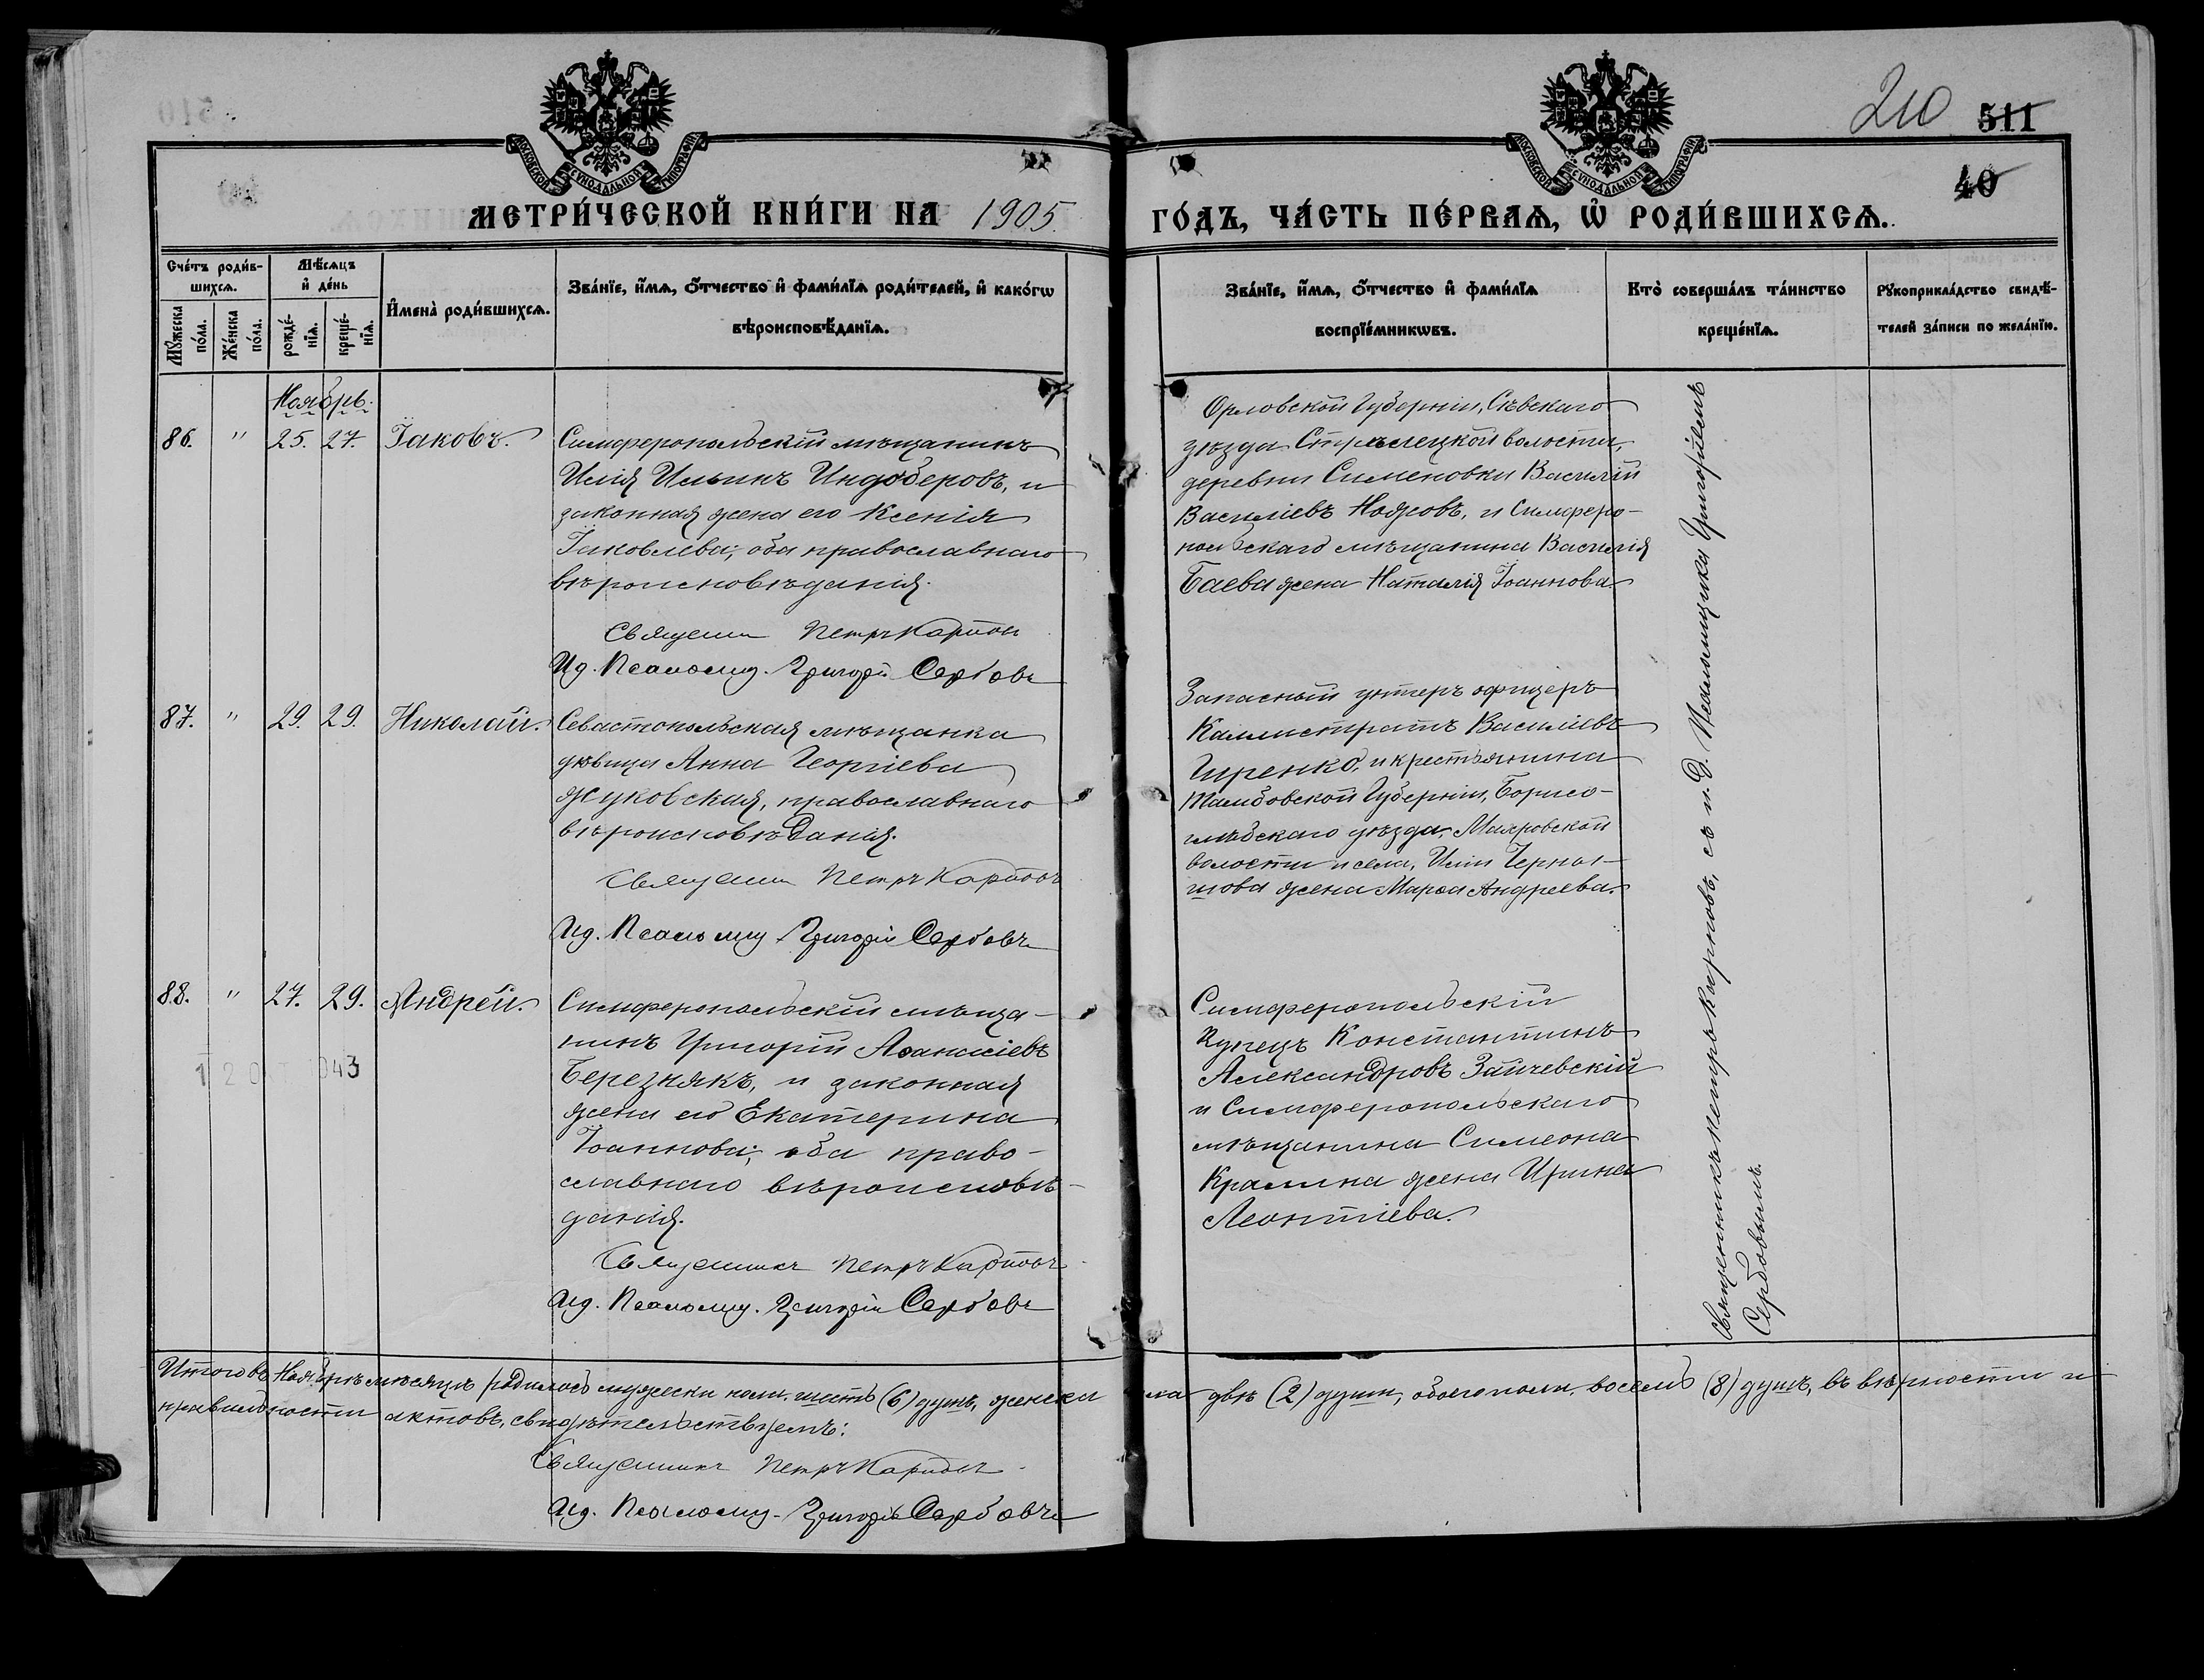 210 511
40
МОСКОВСКОЙ СѴНОДАЛЬНОЙ ТИПОГРАФІИ
МОСКОВСКОЙ СѴНОДАЛЬНОЙ ТИПОГРАФІИ
МЕТРИ́ЧЕСКОЙ КНИ́ГИ НА 1905.
ГО́ДЪ, ЧА́СТЬ ПЕ́РВАѦ, Ѡ҆ РОДИ́ВШИХСѦ.
Сче́тъ роди́в-
шихсѧ.
Мꙋ́жеска по́ла.
Же́нска по́ла.
Мѣ́сѧцъ
и҆ де́нь
рожде́-
нїѧ.
креще́-
нїѧ.
И҆мена̀ роди́вшихсѧ.
Зва́нїе, и҆́мѧ, ѻ҆́тчество и҆ фами́лїѧ роди́телей, и҆ како́гѡ
вѣроисповѣ́данїѧ.
Зва́нїе, и҆́мѧ, ѻ҆́тчество и҆ фами́лїѧ
воспрїе́мникѡвъ.
Кто̀ соверша́лъ та́инство
креще́нїѧ.
Рꙋкоприкла́дство свидѣ́-
телей за́писи по жела́нїю.
Ноябрь.
86. " 25. 27. Іаковъ.
Симферопольскій мѣщанинъ
Илія Ильинъ Индоберовъ, и
законная жена его Ксенія
Іаковлева; оба православнаго
вѣроисповѣданія.
Священн Петръ Карповъ
Ид. Псаломщ. Григорій Сербовъ
Орловской губерніи, Сѣвскаго
уѣзда Стрѣлецкой волости,
деревни Сименовки Василій
Василіевъ, и Симферо-
польскаго мѣщанина Василія
Баева жена Наталія Іоаннова.
87. " 29. 29. Николай.
Севастопольская мѣщанка
дѣвица Анна Георгіева
Жуковская, православнаго
вѣроисповѣданія.
Священн Петръ Карповъ
Ид. Псаломщ. Григорій Сербовъ
Запасный унтеръ офицеръ
Каллистратъ Василіевъ
и крестьянина
Тамбовской губерніи, Борисо-
глѣбскаго уѣзда, Макаровской
волости и села, Иліи Черны-
шова жена Марѳа Андреева.
88. " 27. 29. Андрей.
Симферопольскій мѣща-
нинъ Григорій Аѳанасіевъ
Березнякъ, и законная
жена его Екатерина
Іоаннова; оба право-
славнаго вѣроисповѣ-
данія.
Священникъ Петръ Карповъ
Ид. Псаломщ. Григорій Сербовъ
Симферопольскій
купецъ Константинъ
Александровъ Зайчевскій
и Симферопольскаго
мѣщанина Симеона
Крамина жена Ирина
Леонтіева.
Священникъ Петръ Карповъ, съ и. д. Псаломщика Григоріемъ
Сербовымъ.
Итого въ Ноябрѣ мѣсяцѣ родилось мужеска пола, шесть (6) душъ, женска пола двѣ (2) души, обоего пола, восемь (8) душъ, въ вѣрности и
правильности актовъ, свидѣтельствуемъ:
Священникъ Петръ Карповъ
Ид. Псаломщ. Григорій Сербовъ